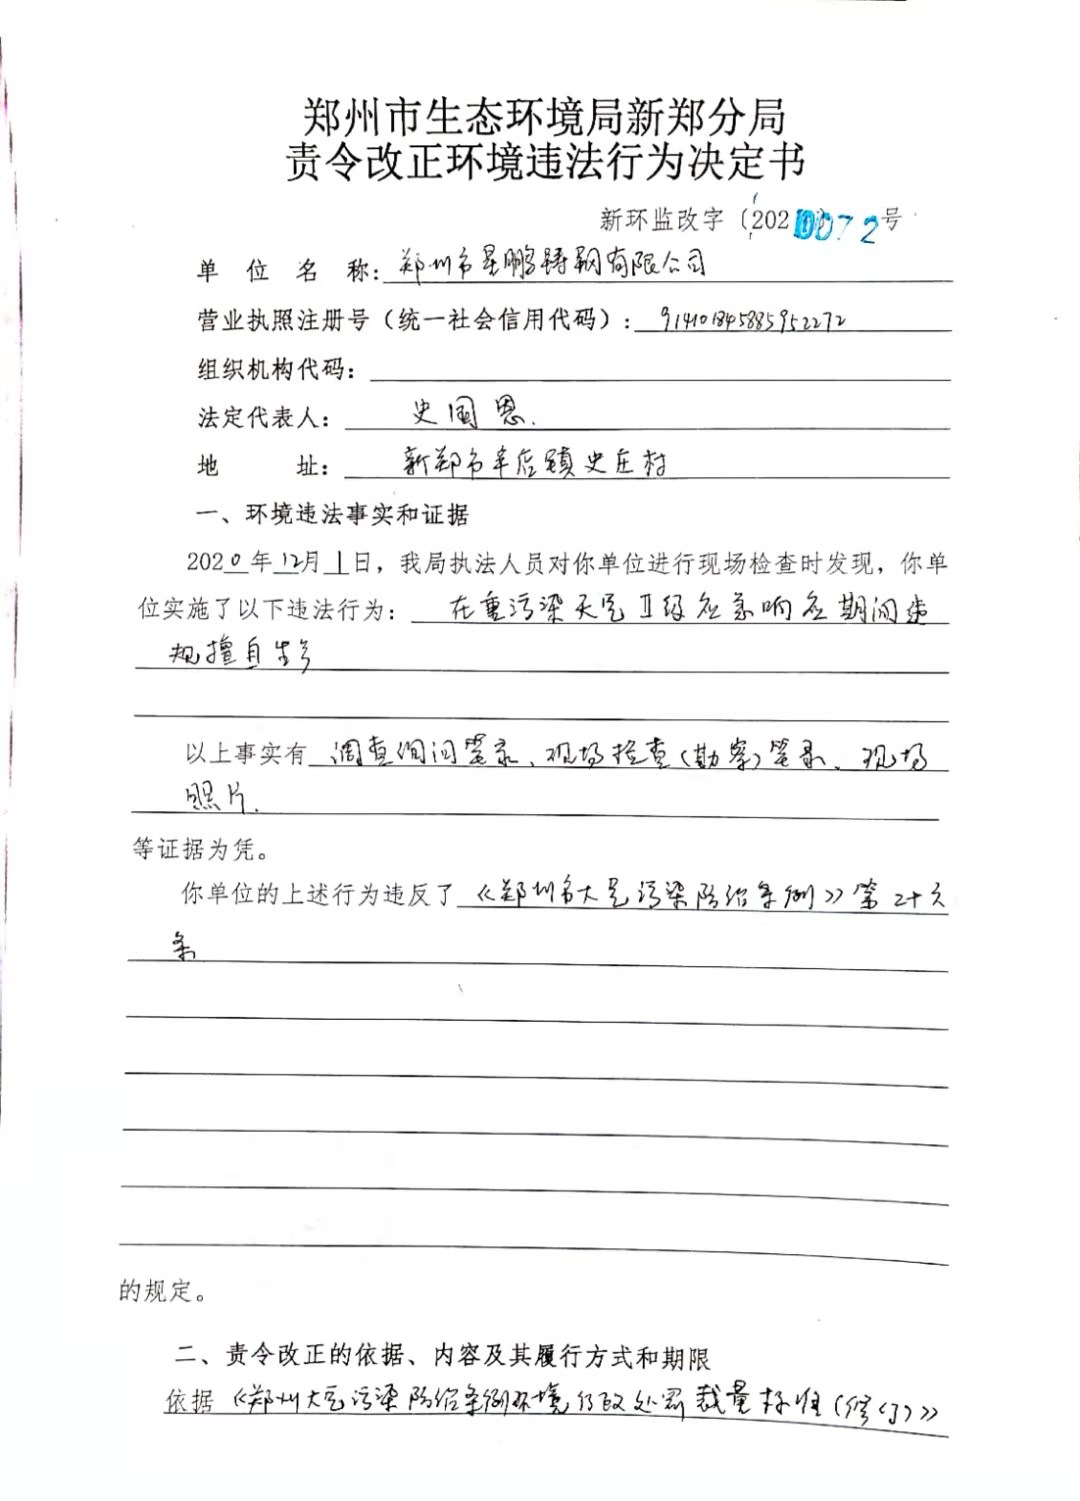 郑州市生态环境局新郑分局
责令改正环境违法行为决定书
新环监改字〔202 0072号
单位名称：郑州市星鹏铸钢有限公司
营业执照注册号（统一社会信用代码）：914101845885952272
组织机构代码：
法定代表人：史国恩
地址：新郑市辛店镇史庄村
一、环境违法事实和证据
2020年12月1日，我局执法人员对你单位进行现场检查时发现，你单
位实施了以下违法行为：在重污染天气Ⅱ级应急响应期间违
规擅自生产
以上事实有调查询问笔录、现场检查（勘察）笔录、现场
照片.
等证据为凭。
你单位的上述行为违反了《郑州市大气污染防治条例》第二十六
条
的规定。
二、责令改正的依据、内容及其履行方式和期限
依据《郑州大气污染防治条例环境行政处罚裁量标准（修订）》